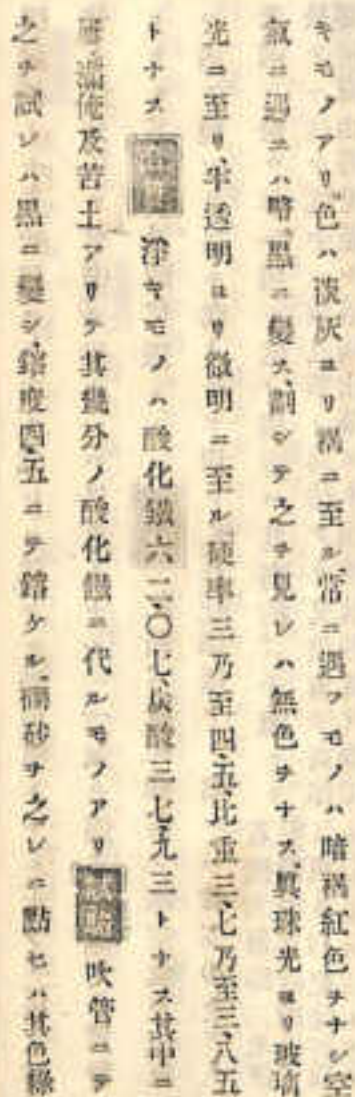 キモノアリ、色ハ淡灰ヨリ褐ニ至ル、常ニ遇フモノハ暗褐紅色ヲナシ空
氣ニ遇エハ暗黒ニ變ス、劃シテ之ヲ見レハ無色ヲナス、眞珠光ヨリ玻璃
光ニ至リ、半透明ヨリ微明ニ至ル硬率三乃至四、五、比重三、七乃至三、八五
トナス 淨キモノハ酸化鐵六二、〇七、炭酸三七、九三トナス其中ニ
滿俺及苦土アリテ其幾分ノ酸化鐵ニ代ルモノアリ 吹管ニテ
之ヲ試レハ黒ニ變シ、鎔度四、五ニテ鎔ケル、硼砂ヲ之レニ點セハ其色綠